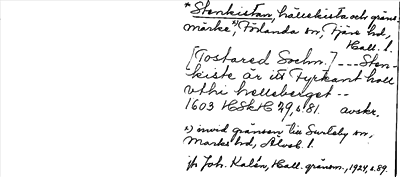 * Stenkistan, hällekista och gräns-
märke,ᵃ⁾ Förlanda sn, Fjäre hd,
Hall. l.
[Tostared Sochn.] --- Sten-
kiste är itt fyrkant holl
vthi helleberget --
1603 HSkH 29, s. 81. avskr.
a) invid gränsen till Surteby sn,
Marks hd, Älvsb. l.
jfr Joh. Kalén, Hall. gränsm., 1924, s. 89.